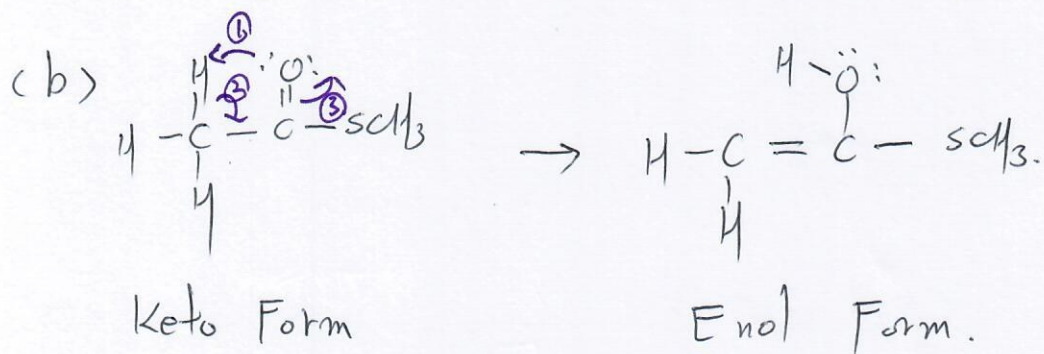 (b)
① H :O:
② ③
H - C - C - SCH3 → H - C = C - SCH3.
H
H - O:
H
Keto Form Enol Form.